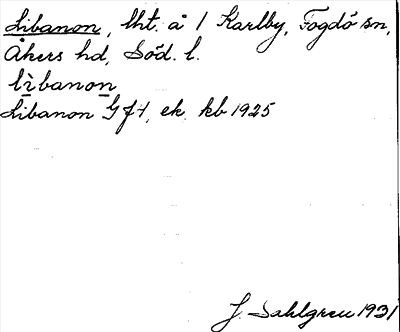 Libanon, lht. å 1 Karlby, Fogdö sn,
Åkers hd, Söd. l.
lìbanon
Libanon Gft, ek. kb 1925
J. Sahlgren 1931